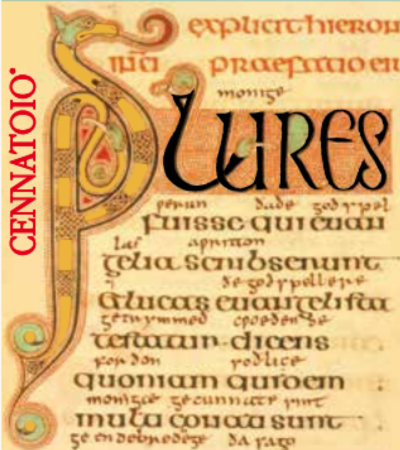 CENNATOIO
explicit hieron
imi praefatio eu
monige
PLURES
ƿerun ðaðe godspel
fuisse qui euan
apriton
gelia scribserunt
ðe godspellere
lucas euangelista
getrymmed cƿoeðende
testatur dicens
forðon soðlice
quoniam quidem
monige gecunnate sint
multi conati sunt
ða sago